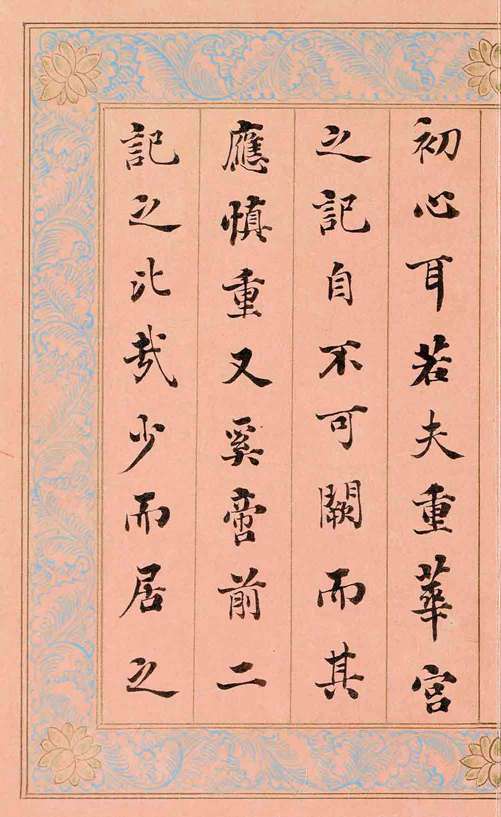 初心耳若夫重華宮
之記自不可闕而其
應慎重又奚啻前二
記之比哉少而居之